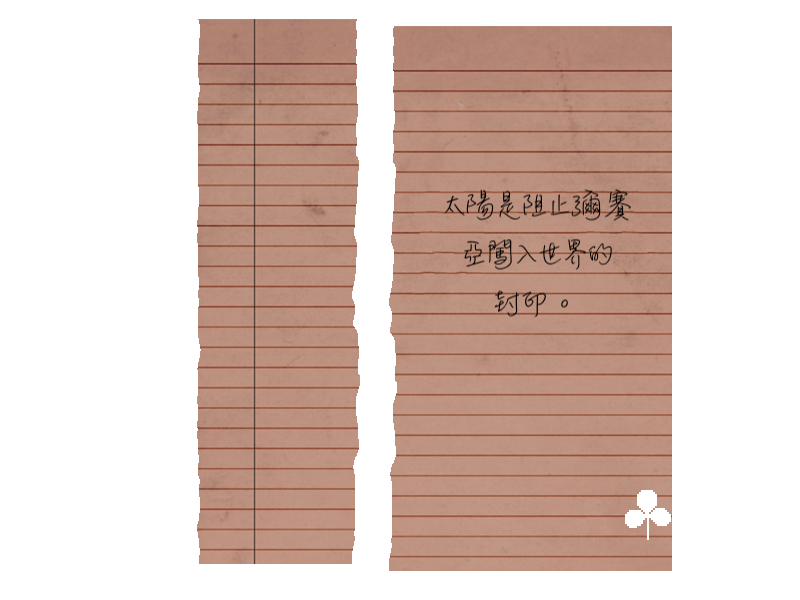 太陽是阻止彌賽
亞闖入世界的
封印。